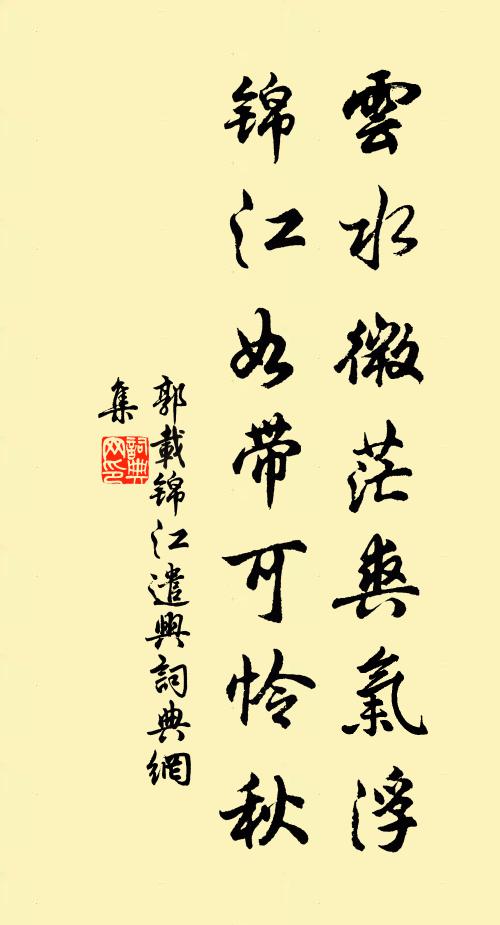 雲水微茫爽氣浮
錦江如帶可憐秋
郭載錦江遣興詞典網
集
詞典
网印